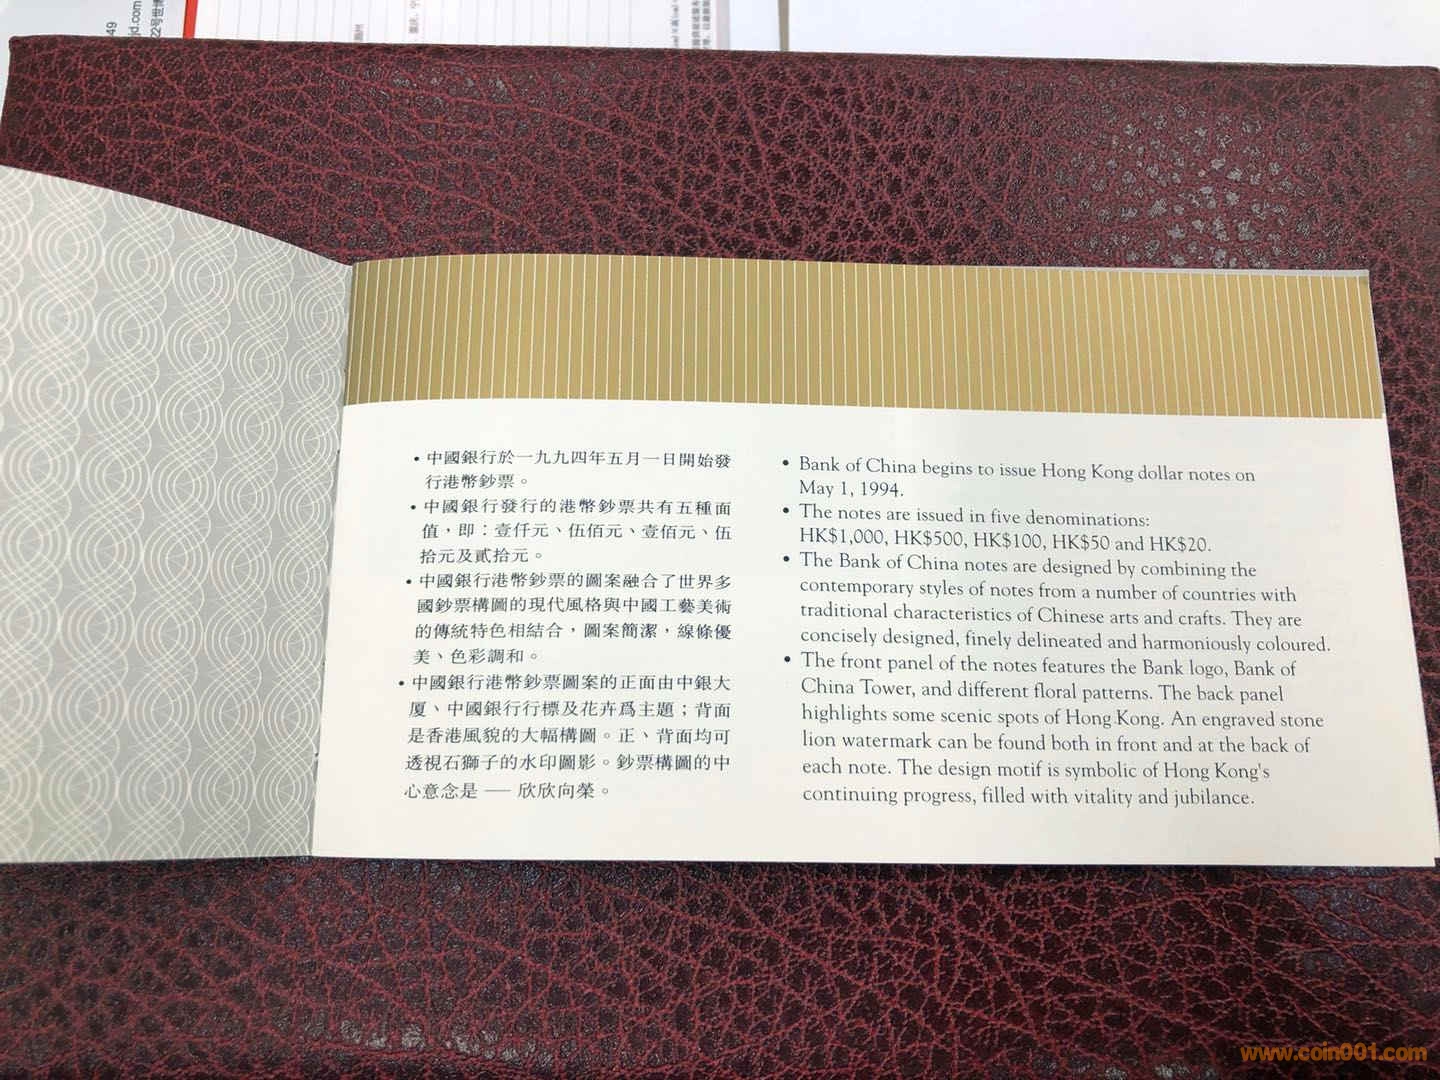 49
jd.com
22号世博
• 中國銀行於一九九四年五月一日開始發
行港幣鈔票。
• 中國銀行發行的港幣鈔票共有五種面
值，即：壹仟元、伍佰元、壹佰元、伍
拾元及貳拾元。
• 中國銀行港幣鈔票的圖案融合了世界多
國鈔票構圖的現代風格與中國工藝美術
的傳統特色相結合，圖案簡潔，線條優
美、色彩調和。
• 中國銀行港幣鈔票圖案的正面由中銀大
厦、中國銀行行標及花卉爲主題；背面
是香港風貌的大幅構圖。正、背面均可
透視石獅子的水印圖影。鈔票構圖的中
心意念是 —— 欣欣向榮。
• Bank of China begins to issue Hong Kong dollar notes on
May 1, 1994.
• The notes are issued in five denominations:
HK$1,000, HK$500, HK$100, HK$50 and HK$20.
• The Bank of China notes are designed by combining the
contemporary styles of notes from a number of countries with
traditional characteristics of Chinese arts and crafts. They are
concisely designed, finely delineated and harmoniously coloured.
• The front panel of the notes features the Bank logo, Bank of
China Tower, and different floral patterns. The back panel
highlights some scenic spots of Hong Kong. An engraved stone
lion watermark can be found both in front and at the back of
each note. The design motif is symbolic of Hong Kong's
continuing progress, filled with vitality and jubilance.
www.coin001.com